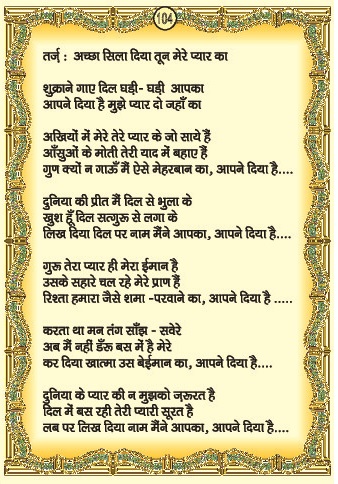 104
तर्ज़ : अच्छा सिला दिया तून मेरे प्यार का
शुक्राने गाए दिल घड़ी- घड़ी आपका
आपने दिया है मुझे प्यार दो जहाँ का
अखियों में मेरे तेरे प्यार के जो साये हैं
आँसुओं के मोती तेरी याद में बहाए हैं
गुण क्यों न गाऊँ मैं ऐसे मेहरबान का, आपने दिया है....
दुनिया की प्रीत मैं दिल से भुला के
खुश हूँ दिल सत्गुरू से लगा के
लिख दिया दिल पर नाम मैंने आपका, आपने दिया है....
गुरू तेरा प्यार ही मेरा ईमान है
उसके सहारे चल रहे मेरे प्राण हैं
रिश्ता हमारा जैसे शमा -परवाने का, आपने दिया है .....
करता था मन तंग साँझ - सवेरे
अब मैं नहीं डँरू बस में है मेरे
कर दिया खात्मा उस बेईमान का, आपने दिया है....
दुनिया के प्यार की न मुझको ज़रूरत है
दिल में बस रही तेरी प्यारी सूरत है
लब पर लिख दिया नाम मैंने आपका, आपने दिया है....